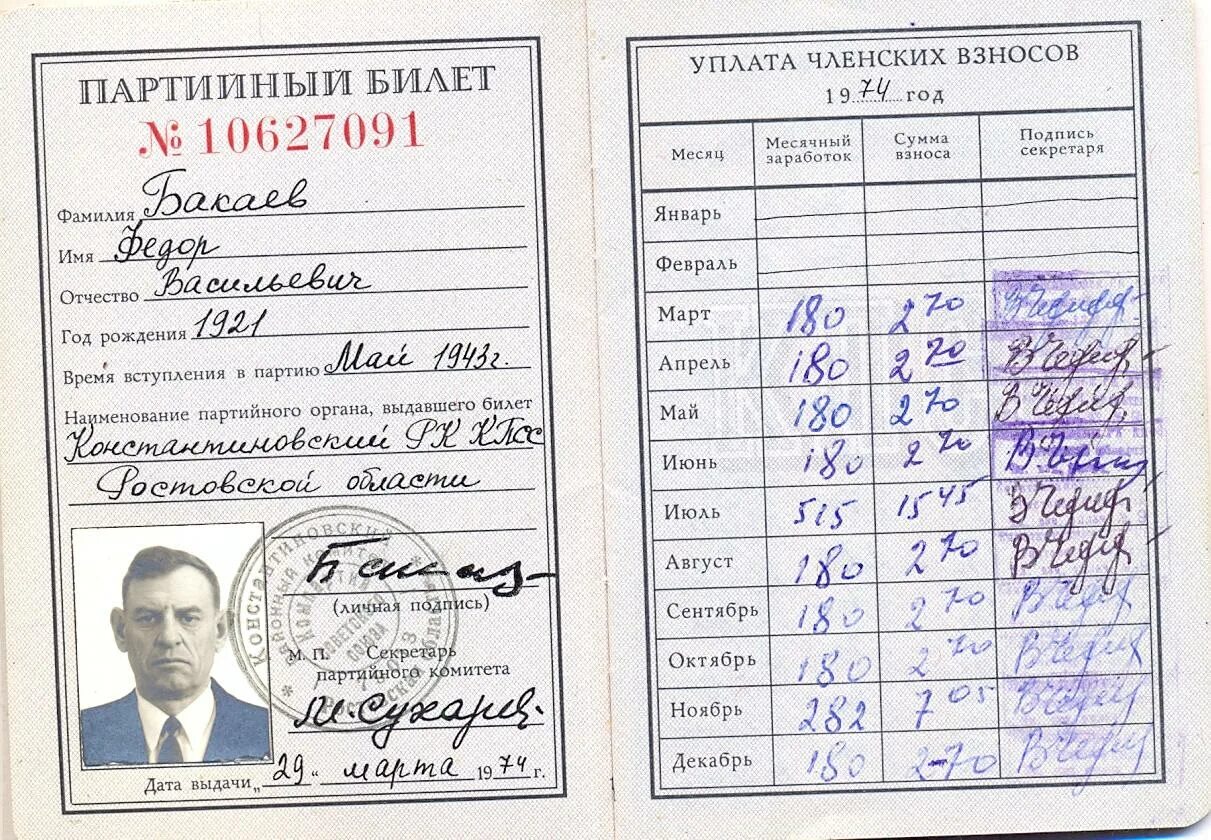 ПАРТИЙНЫЙ БИЛЕТ
№ 10627091
Фамилия Бакаев
Имя Федор
Отчество Васильевич
Год рождения 1921
Время вступления в партию Май 1943г.
Наименование партийного органа, выдавшего билет
Константиновский РК КПСС
Ростовской области
(личная подпись)
М. П. Секретарь
партийного комитета
М. Сухарев
Дата выдачи „29“ марта 1974 г.
УПЛАТА ЧЛЕНСКИХ ВЗНОСОВ
1974 год
Месяц Месячный заработок Сумма взноса Подпись секретаря
Январь
Февраль
Март 180 2 70
Апрель 180 2 70
Май 180 2 70
Июнь 180 2 70
Июль 515 15 45
Август 180 2 70
Сентябрь 180 2 70
Октябрь 180 2 70
Ноябрь 282 7 05
Декабрь 180 2-70